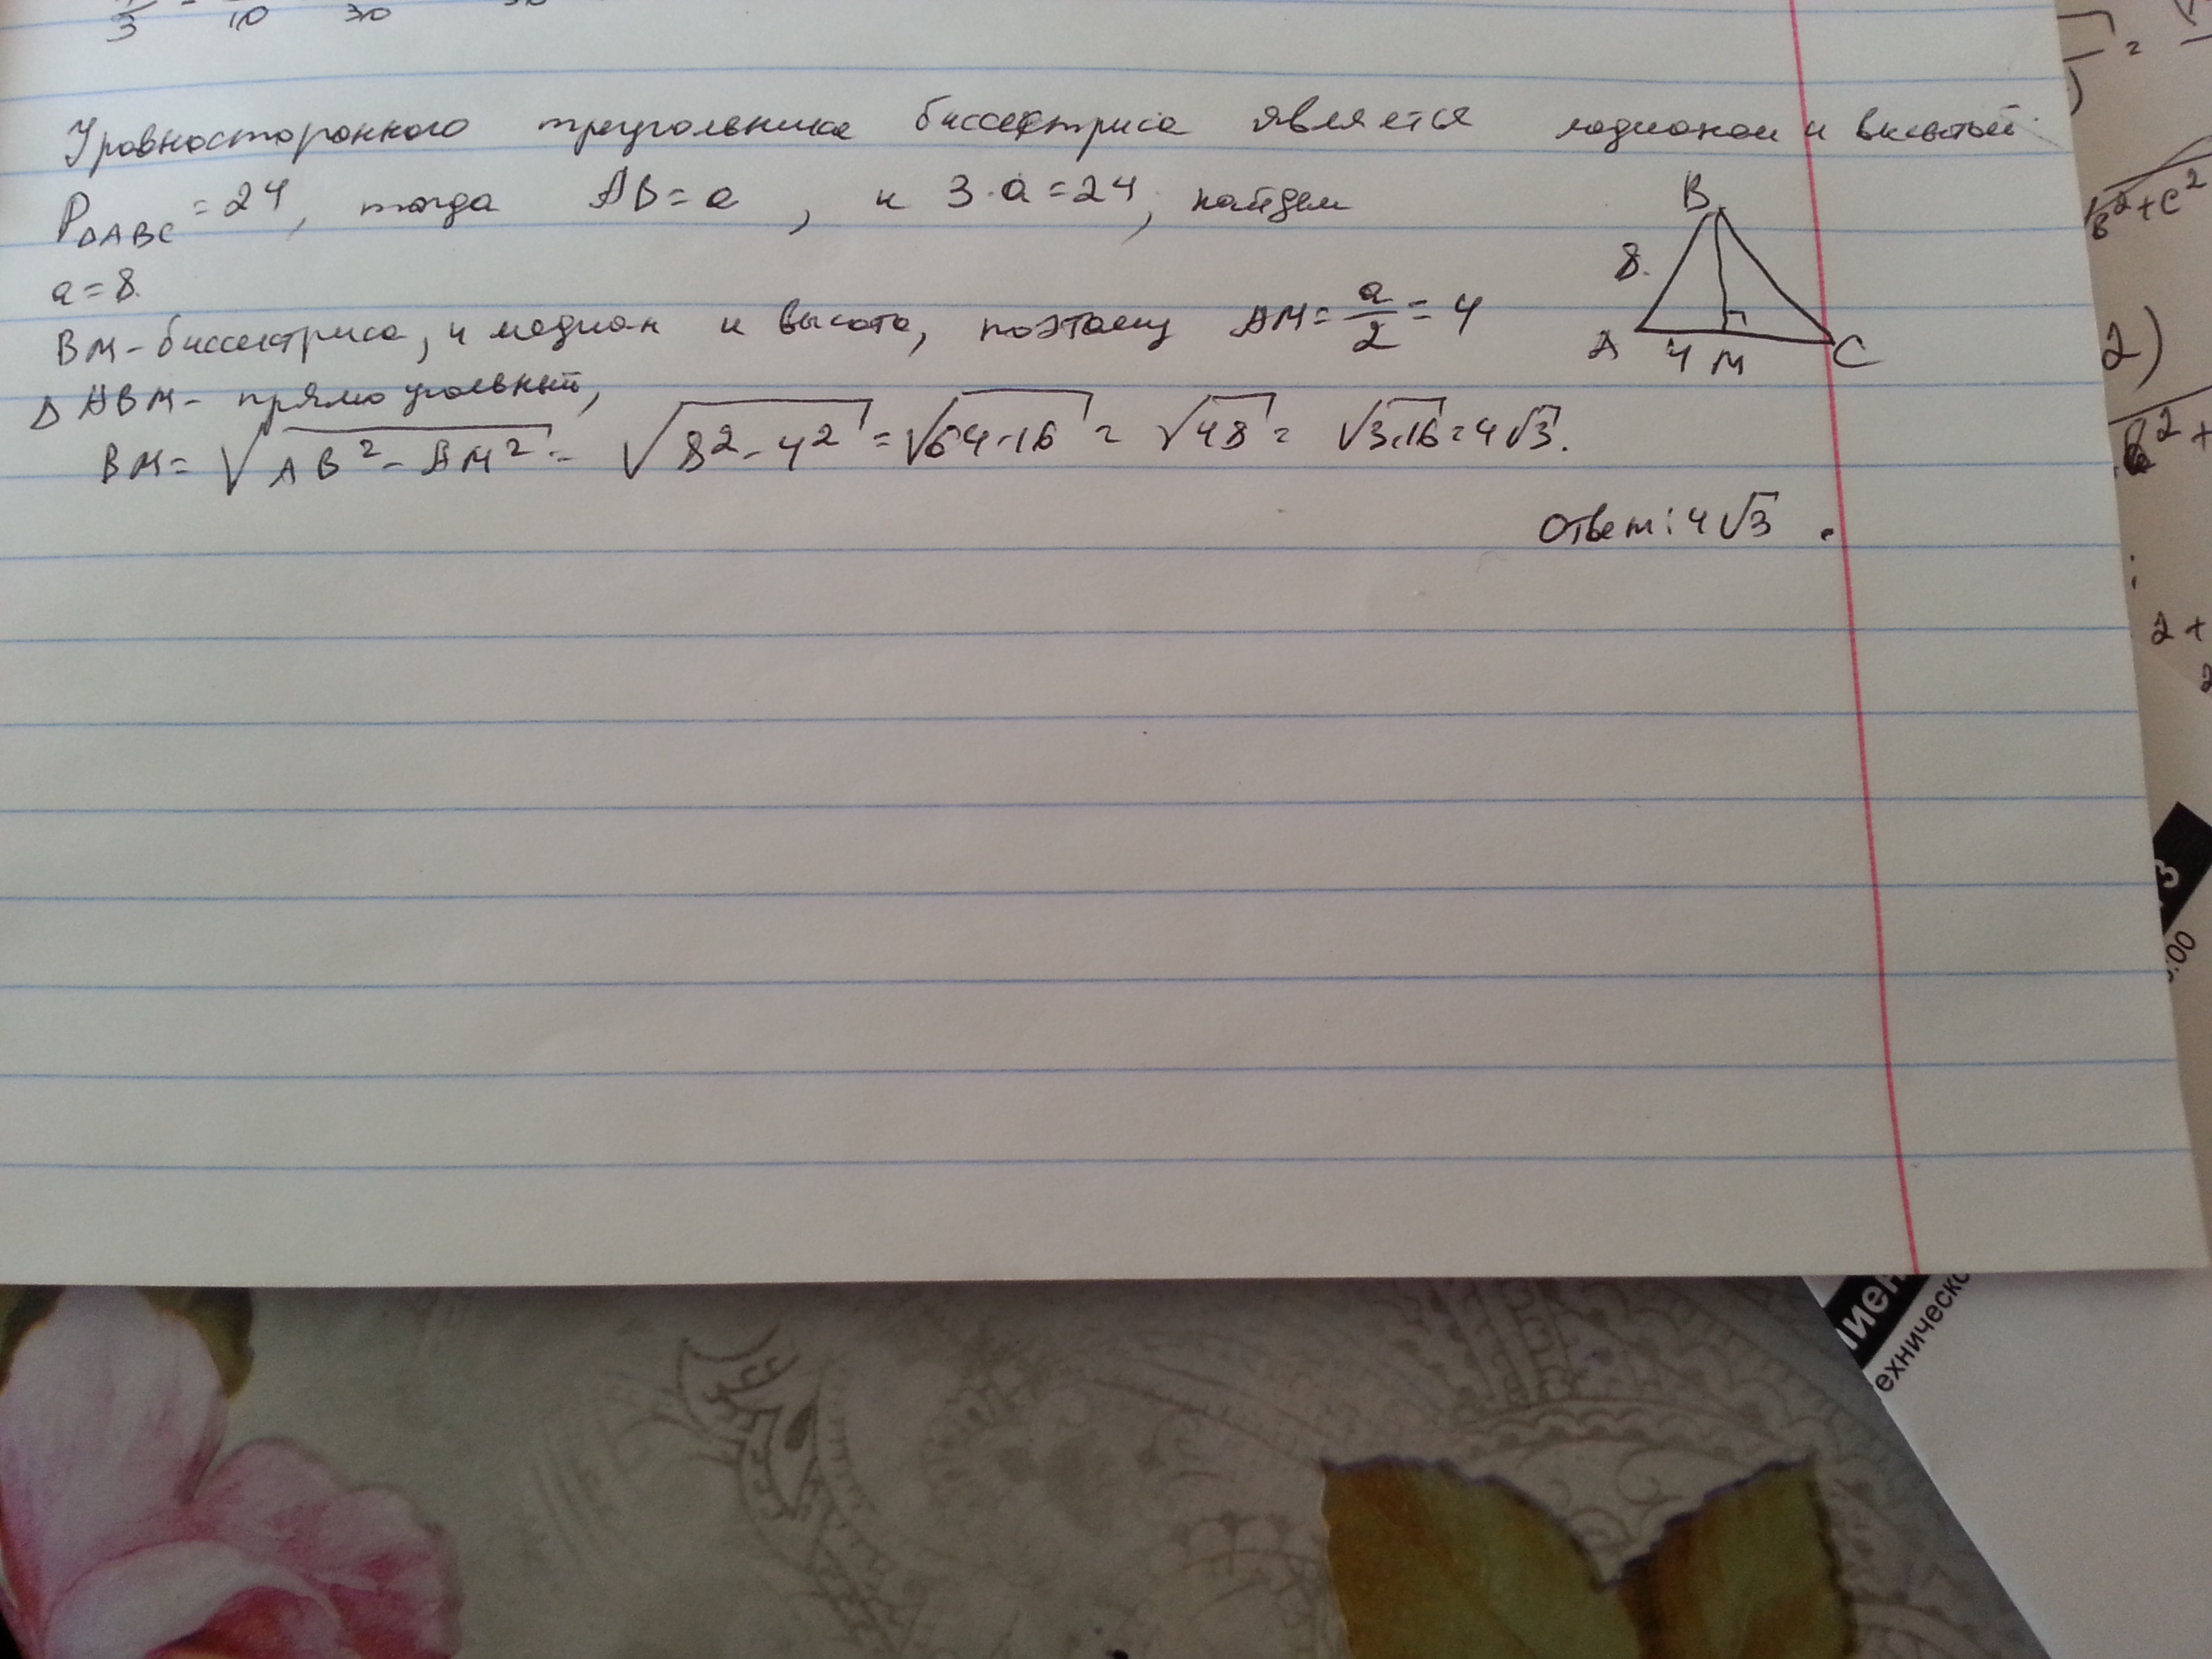 3 10 30
Уравносторонного треугольника биссектриса является медианой и высотой.
P△ABC = 24, тогда AB = a, и 3·a = 24, найдем
a = 8.
BM - биссектриса, и медиан и высота, поэтому AM = a/2 = 4
△ ABM - прямоугольный,
BM = √(AB² - AM²) = √(8² - 4²) = √(64-16) = √48 = √(3·16) = 4√3.
Ответ: 4√3.
B
8.
A 4 M C
в²+c²
2)
2+
3
:00
ехническо